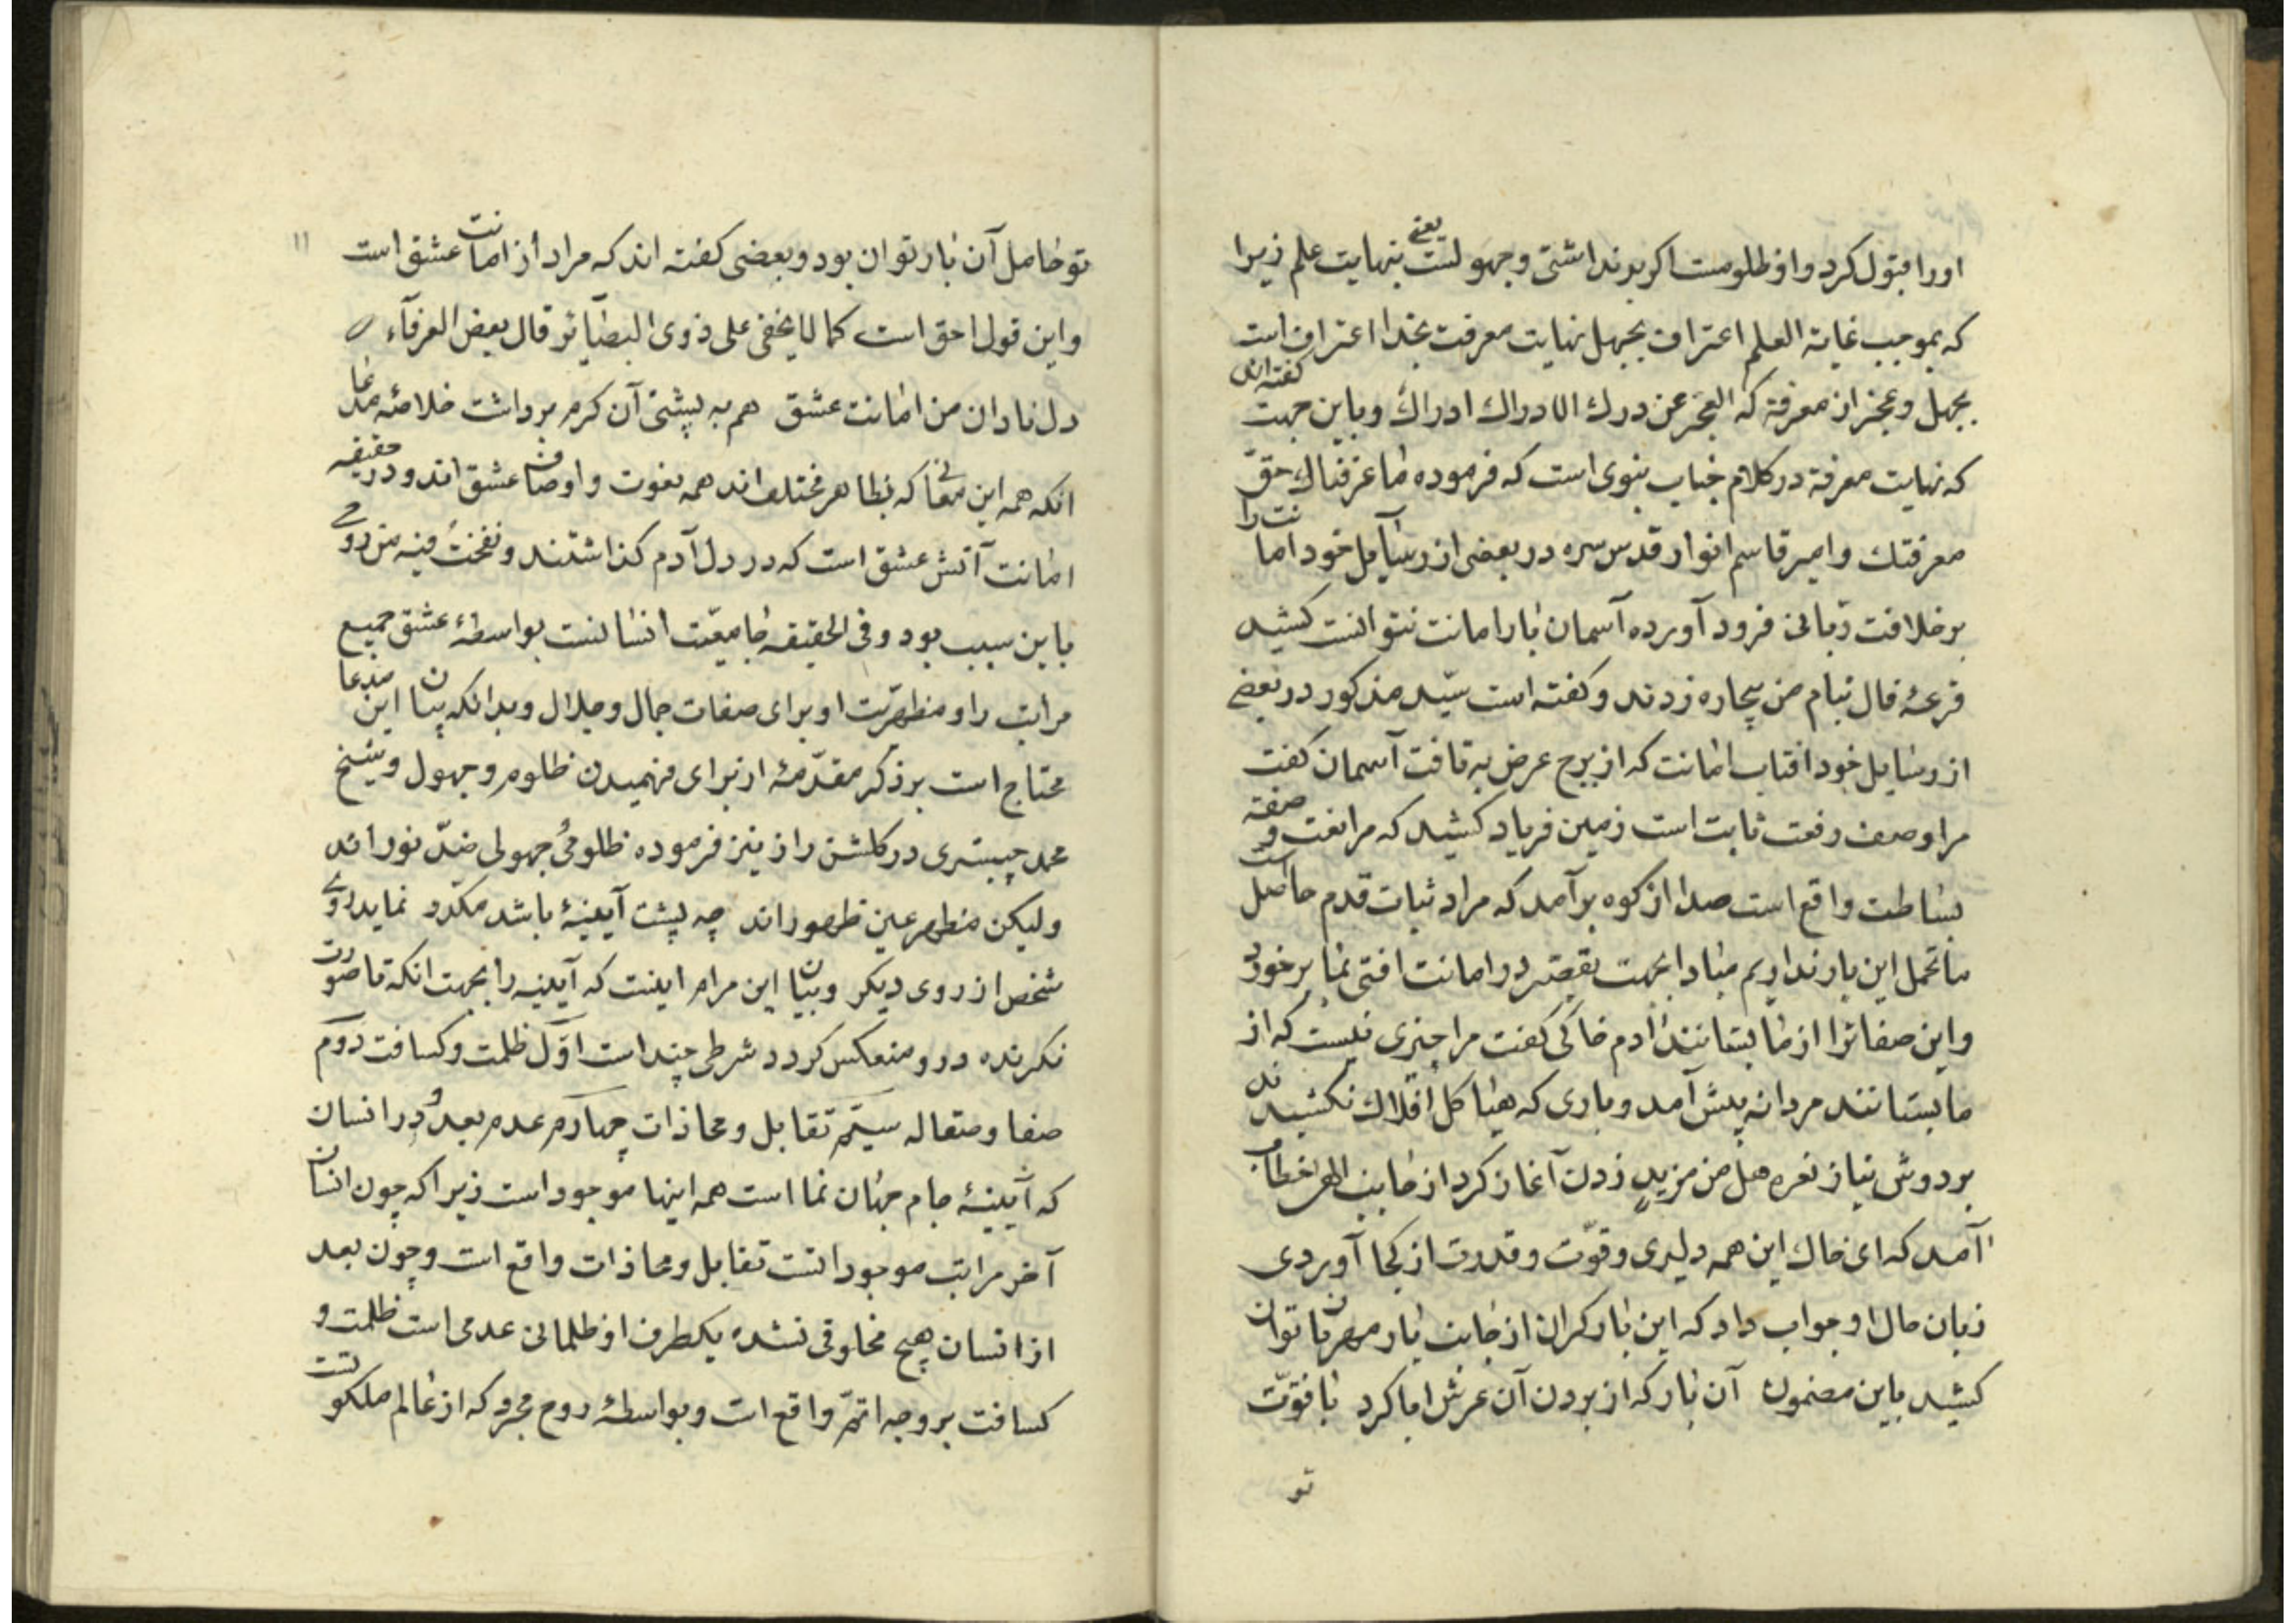 اورا قبول کرد و او ظلومست اکر بر نداشتی و جهولست یعنی بنهایت علم زیرا
که بموجب غایة العلم اعتراف بجهل نهایت معرفت بخدا اعتراف است
بجهل و عجز از معرفة که گفته‌اند العجز عن درك الادراك ادراك و باین جهت
که نهایت معرفة در کلام جناب نبوی است که فرموده ما عرفناك حقّ
معرفتك و امیر قاسم انوار قدس سره در بعضی از رسایل خود امانت را
بر خلافت ربانی فرود آورده آسمان بار امانت نتوانست کشید
قرعهٔ فال بنام من بیچاره زدند و کفته است سیّد مذکور در بعضی
از رسایل خود افتاب امانت که از برج عرض به تافت آسمان کفت
مرا وصف رفعت ثابت است زمین فریاد کشید که مرا نعت و صفته
بساطت واقع است صدا از کوه برآمد که مراد ثبات قدم حاصل است
ما تحمل این بار نداریم مبادا بجهت تقصیر در امانت افتی بما بر خورد
و این صفاترا از ما بستانند آدم خاکی کفت مرا چیزی نیست که از
ما بستانند مردانه پیش آمد و باری که هیاکل افلاك نکشیدند
بر دوش نیاز نعره هل من مزید زدن آغاز کرد از جانب الهی خطاب
آمد که ای خاك این همه دلیری و قوّت و قدرت از کجا آوردی
زبان حال او جواب داد که این بار کران از جانب یار مهربان توان
کشید باین مضمون آن بار که از بردن آن عرش ابا کرد با قوّت
تو
۱۱
تو حامل آن بار توان بود و بعضی کفته اند که مراد از امانت عشق است
و این قول احق است کما لا یخفی علی ذوی البصایر قال بعض العرفآء
دل نادان من امانت عشق هم به پشتی آن کرم برداشت خلاصهٔ مدعا
انکه همه این معانی که بظاهر مختلف اند همه نعوت و اوصاف عشق اند و در حقیقه
امانت آتش عشق است که در دل آدم کذاشتند و نفخت فیه من روحی
باین سبب بود و فی الحقیقه جامعیّت انسانست بواسطهٔ عشق جمیع
مراتب را و مظهریّت او برای صفات جمال و جلال و بدانکه بیان این مدعا
محتاج است بر ذکر مقدّمهٔ از برای فهمیدن ظلوم و جهول و شیخ
محمد چبستری در کلشن راز نیز فرموده ظلومی جهولی ضدّ نوراند
ولیکن مظهر عین ظهوراند چه پشت آیینهٔ باشد مکدّر نماید روی
شخص از روی دیکر و بیان این مرام اینست که آیینه را بجهت انکه تا صورت
نکرنده در و منعکس کردد شرطی چند است اوّل ظلمت و کسافت دوّم
صفا و صقاله سیّم تقابل و محاذات چهارم عدم بعد و در انسان
که آیینهٔ جام جهان نما است همه اینها موجود است زیرا که چون انسان
آخر مراتب موجوداتست تقابل و محاذات واقع است و چون بعد
از انسان هیچ مخلوقی نشده یکطرف او ظلمانی عدمی است ظلمت و
کسافت بر وجه اتمّ واقع است و بواسطهٔ روح مجرد که از عالم ملکوتست